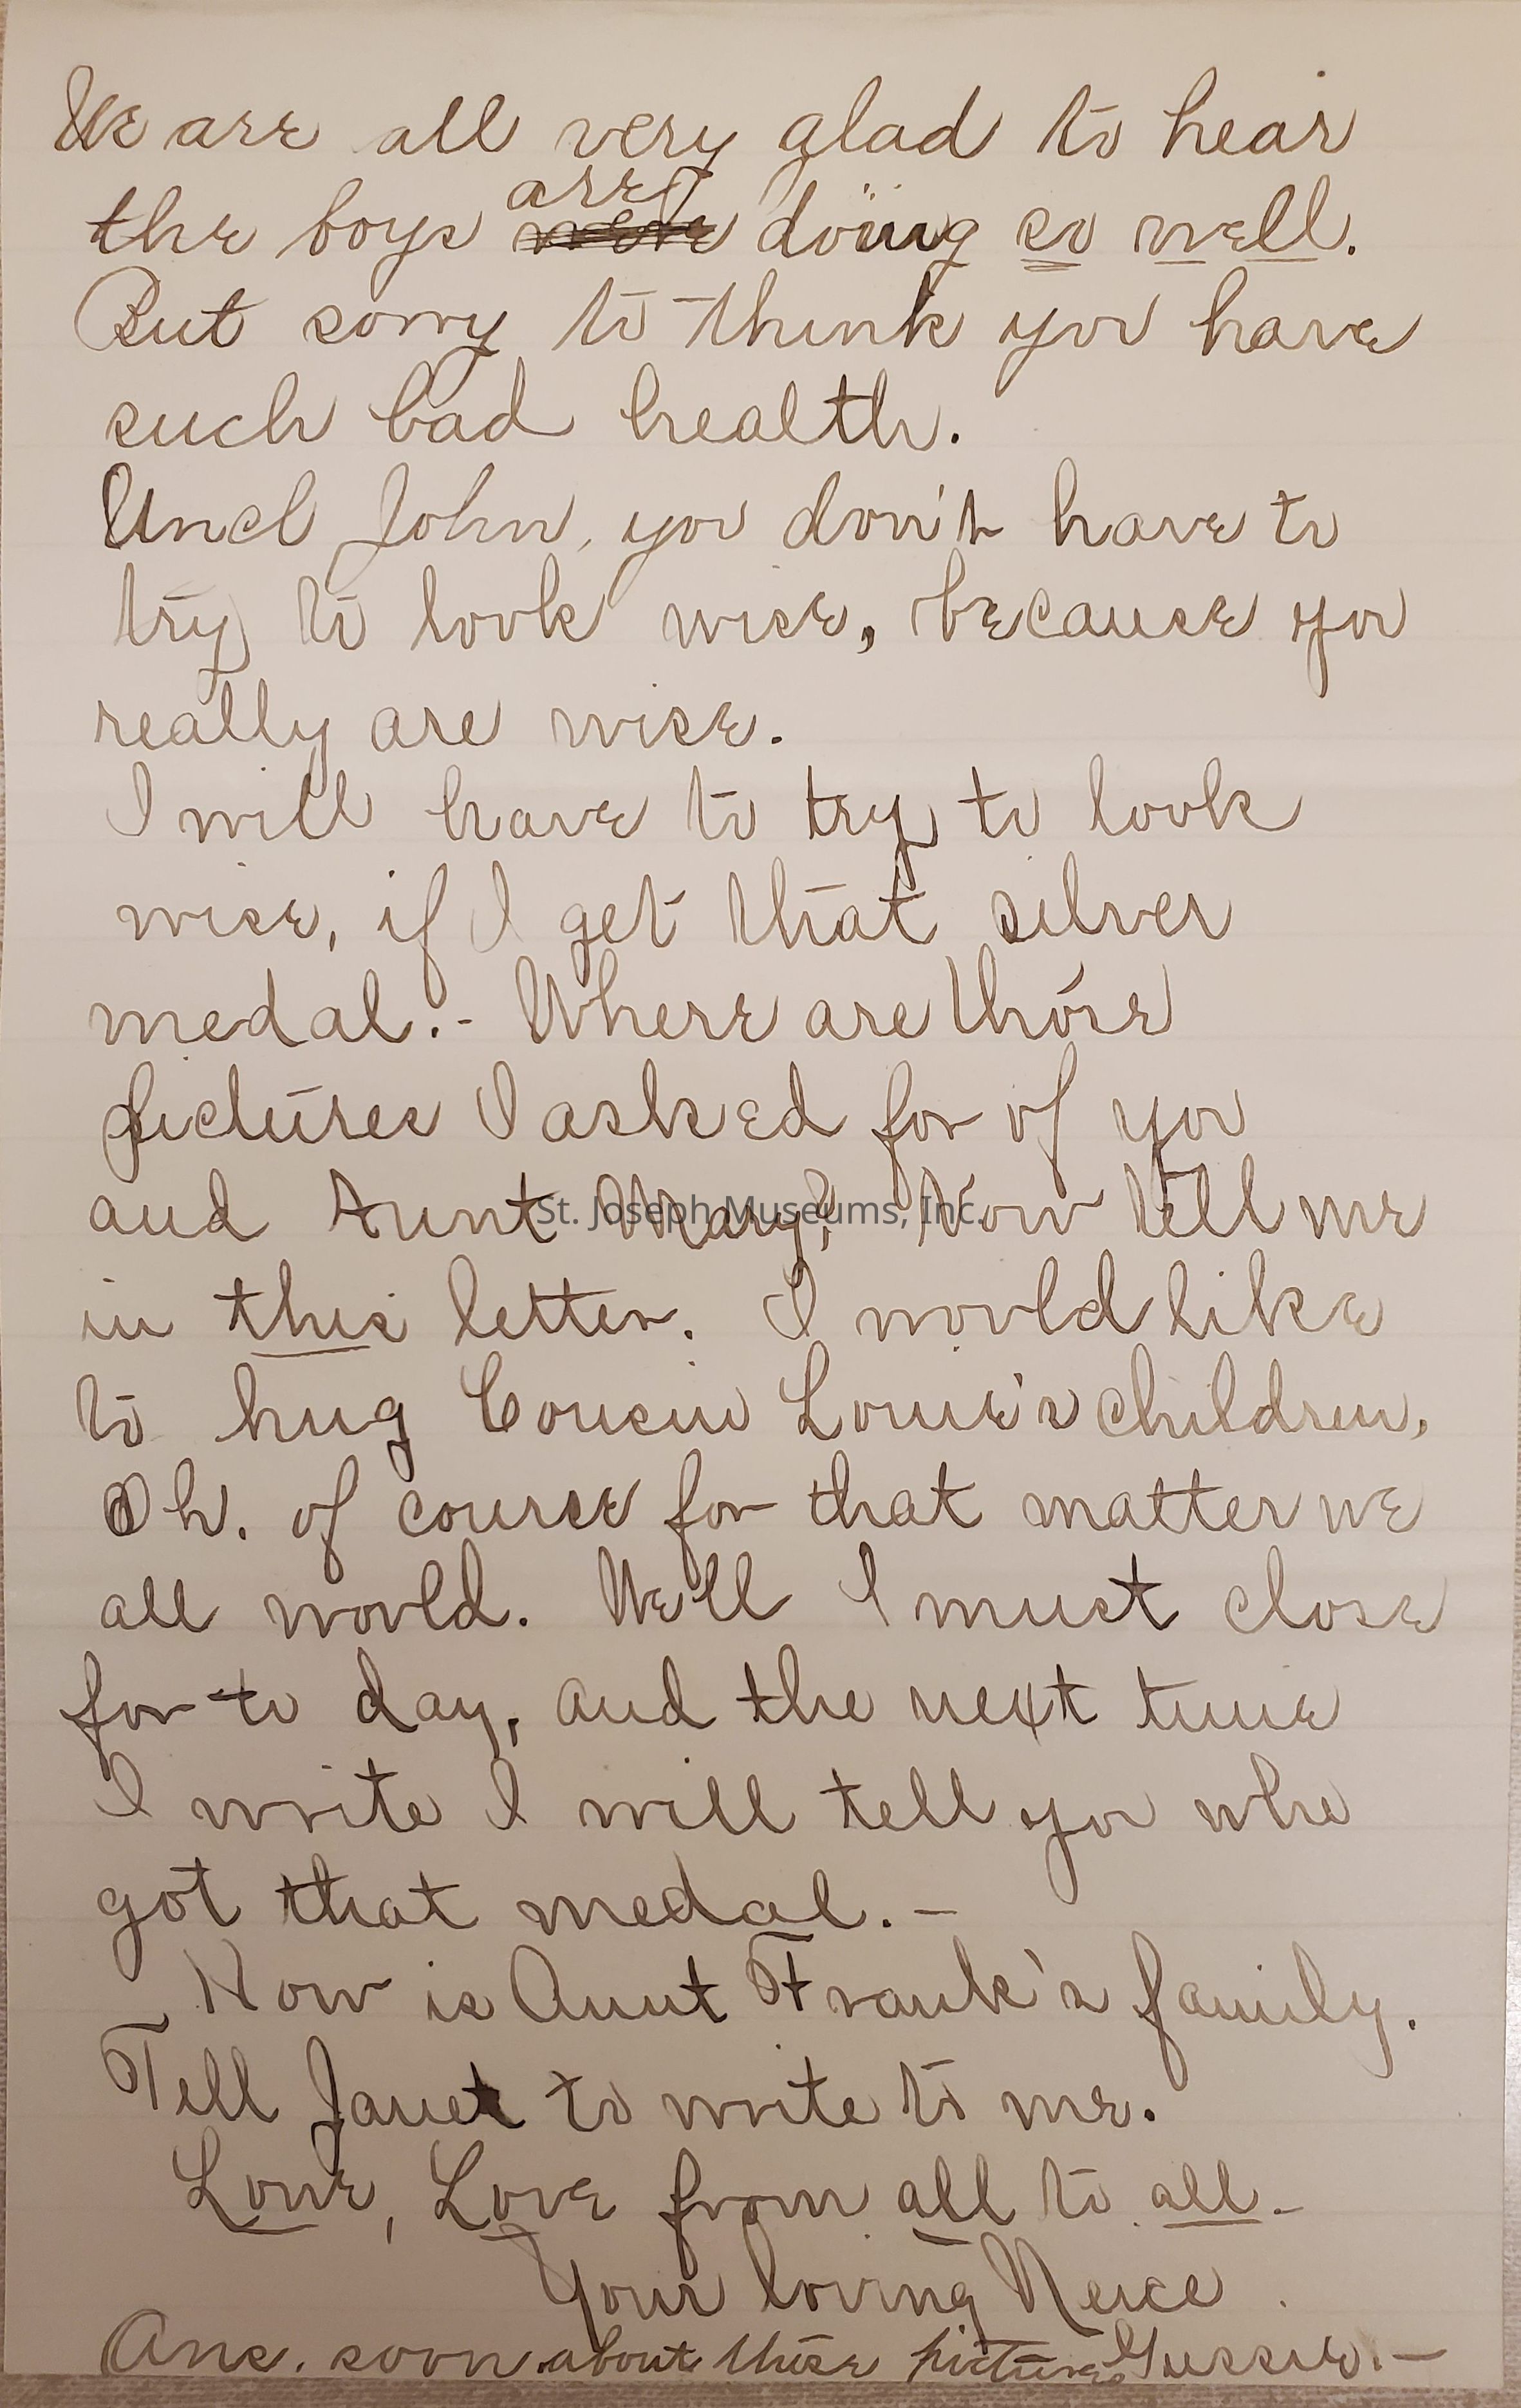 We are all very glad to hear
are
the boys were doing so well.
But sorry to think you have
such bad health.
Uncl John, you don't have to
try to look wise, because you
really are wise.
I will have to try to look
wise, if I get that silver
medal.- Where are those
pictures I asked for of you
and Aunt Mary? Now tell me
St. Joseph Museums, Inc.
in this letter. I would like
to hug Cousin Louie's children,
Oh. of course for that matter we
all would. Well I must close
for to day, and the next time
I write I will tell you who
got that medal.-
How is Aunt Frank's family.
Tell Janet to write to me.
Love, Love from all to all.-
Your loving Neice
Ans. soon about those pictures Gussie.-